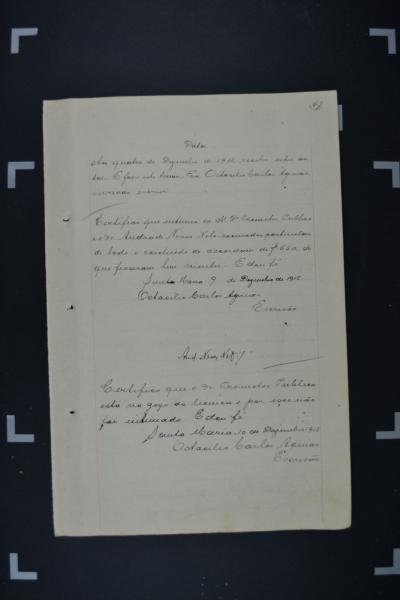 Data
Aos quatro de Dezembro de 191 recebi estes au
tos. E fiz este termo. Eu Octacilio Carlos Aguiar
escrivão escrevi
Certifico que intimei o Dr Promotor Publico
e o Dr Andrade Neves Neto
de todo o conteúdo do accordam de f 660, do
que ficaram bem scientes. E dou fé
Santa Maria 9 de Dezembro de 1915
Octacilio Carlos Aguiar
Escrivão
And. Neves Neto
Certifico que o Dr Promotor Publico
está no gozo de licença e por isso não
foi intimado. E dou fé
Santa Maria 10 de Dezembro 1915
Octacilio Carlos Aguiar
Escrivão